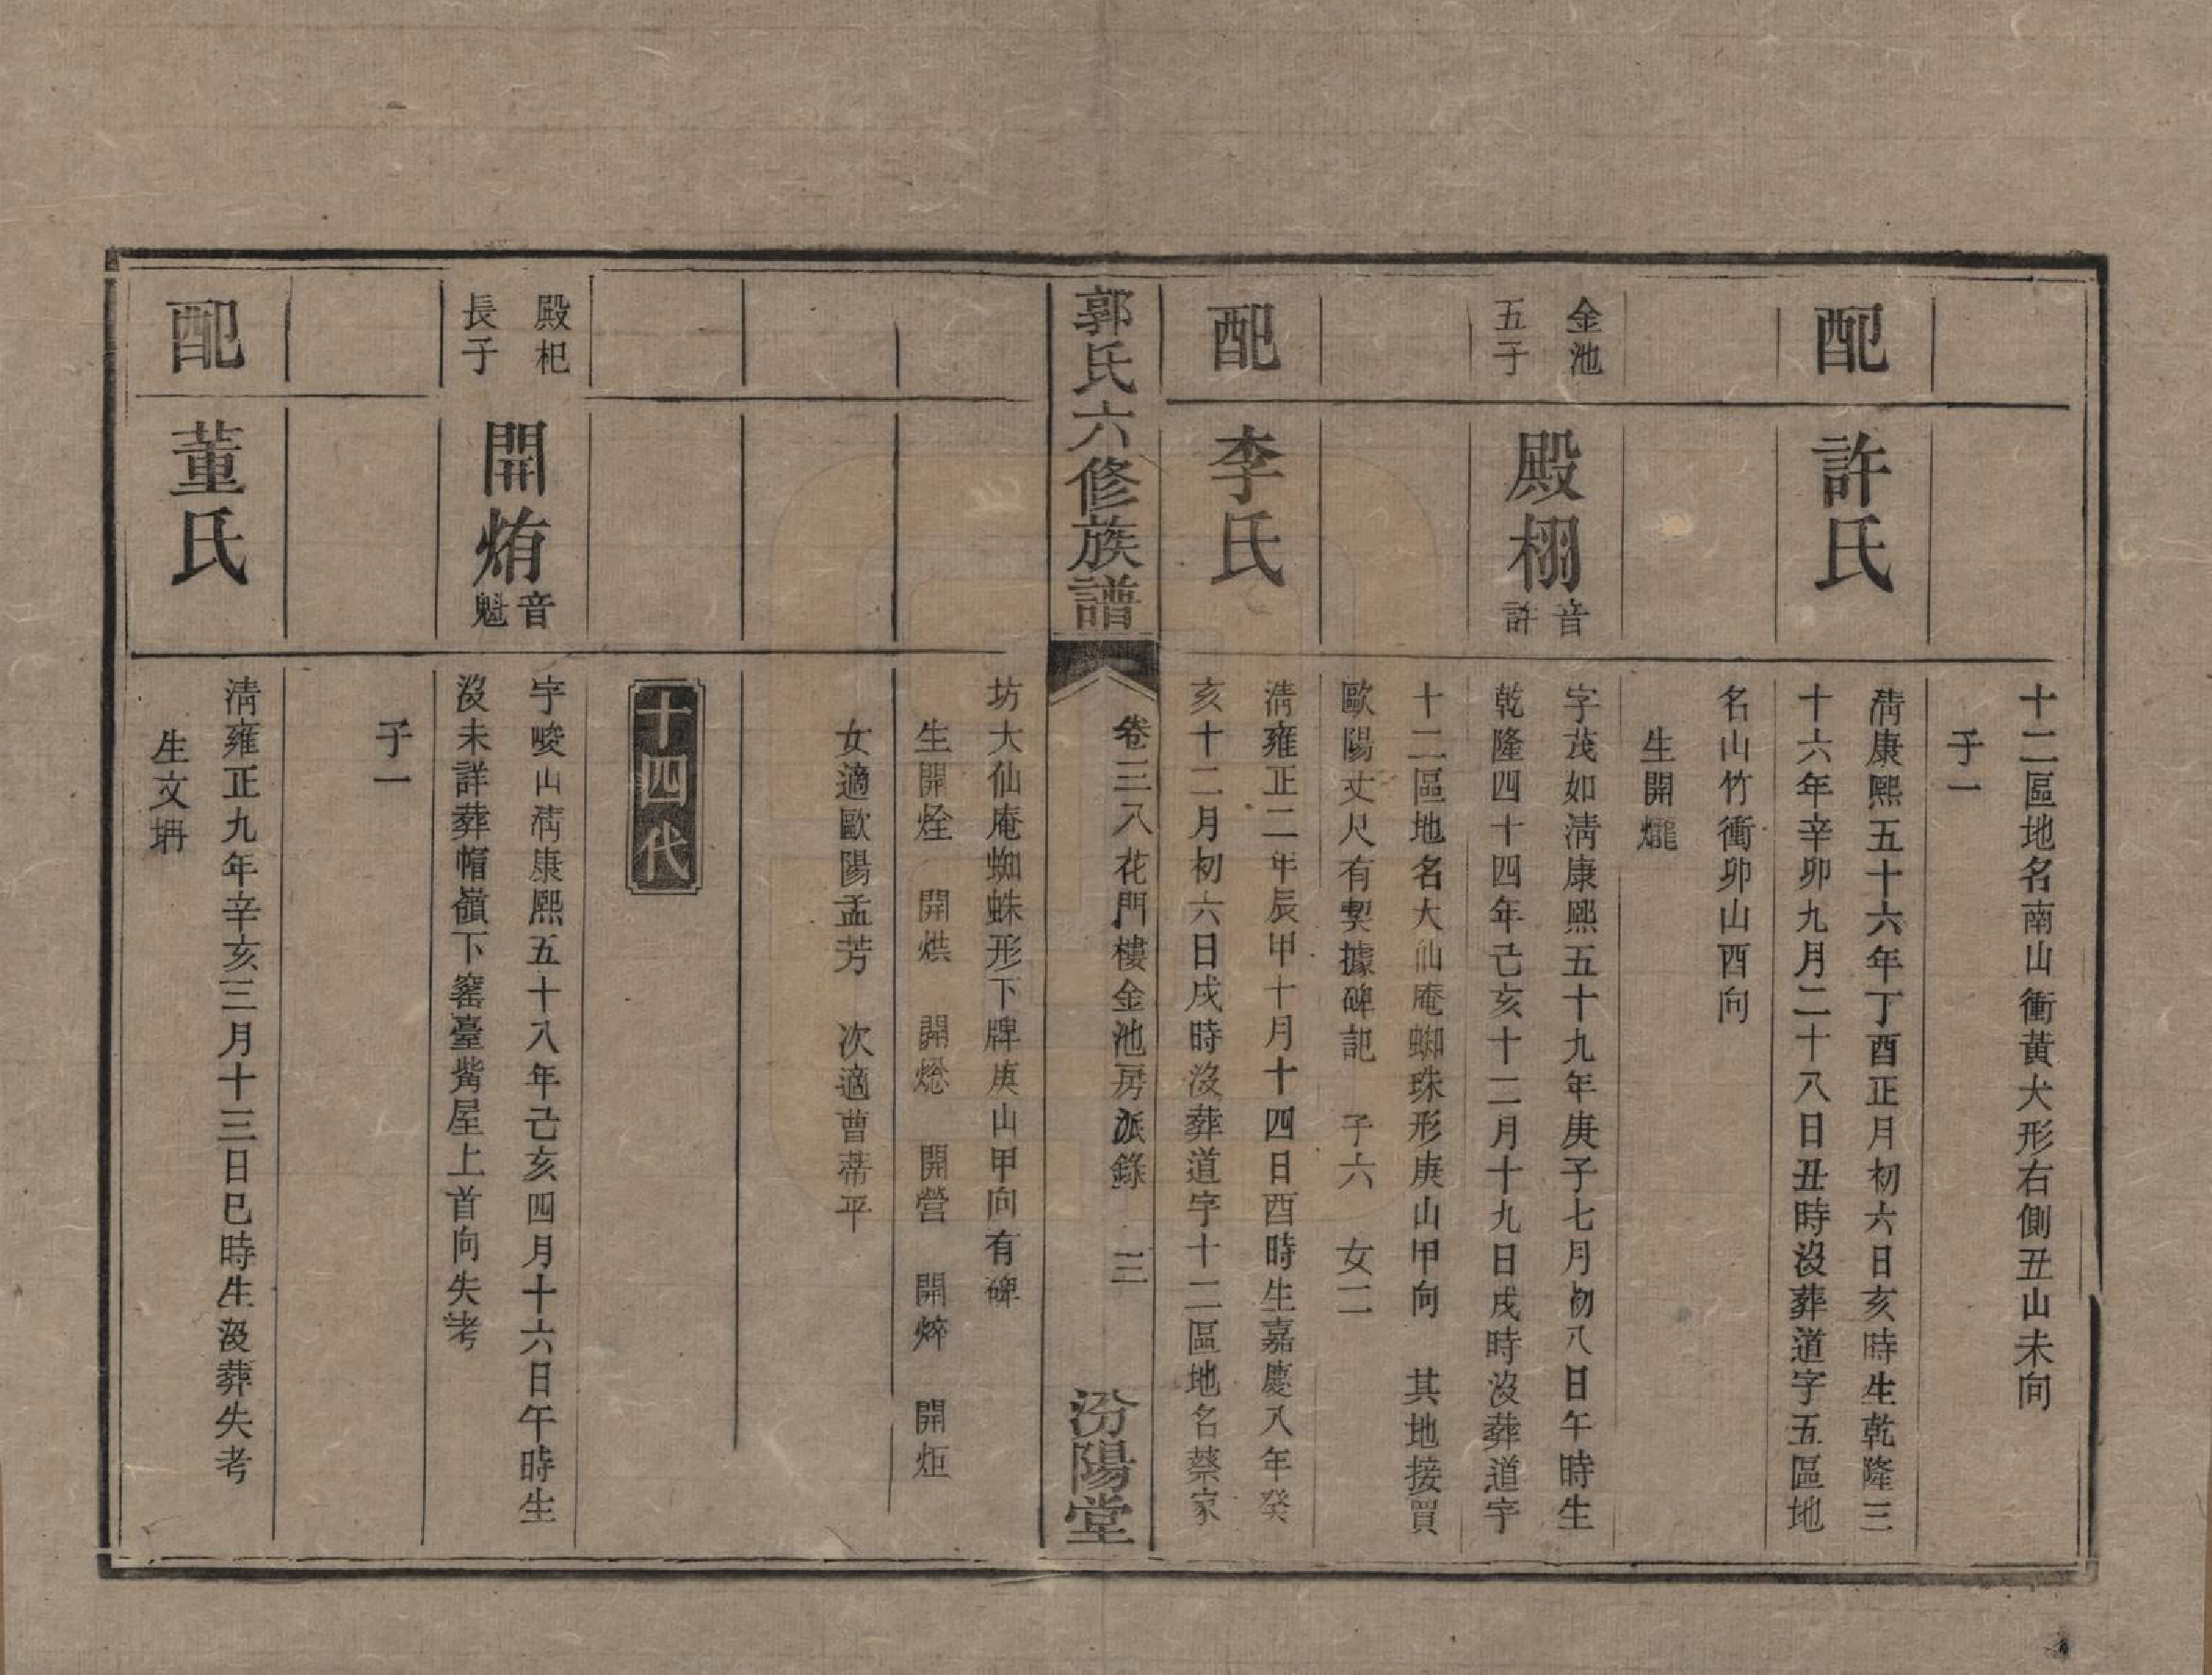 十二區地名南山衝黃犬形右側丑山未向
子一
配
許氏
清康熙五十六年丁酉正月初六日亥時生乾隆三
十六年辛卯九月二十八日丑時沒葬道字五區地
名山竹衝卯山酉向
生開爖
金池
五子
殿栩
音
許
字茂如清康熙五十九年庚子七月初八日午時生
乾隆四十四年己亥十二月十九日戌時沒葬道字
十二區地名大仙庵蜘珠形庚山甲向 其地接買
歐陽丈尺有契據碑記 子六 女二
配
李氏
清雍正二年辰甲十月十四日酉時生嘉慶八年癸
亥十二月初六日戌時沒葬道字十二區地名蔡家
郭氏六修族譜
卷三八花門樓金池房派錄 三
汾陽堂
坊大仙庵蜘蛛形下牌庚山甲向有碑
生開烇 開烘 開燪 開營 開焠 開炬
女適歐陽孟芳 次適曹蒂平
十四代
殿杞
長子
開烠
音
魁
字峻山清康熙五十八年己亥四月十六日午時生
沒未詳葬帽嶺下窰臺觜屋上首向失考
子一
配
董氏
清雍正九年辛亥三月十三日巳時生沒葬失考
生文坍